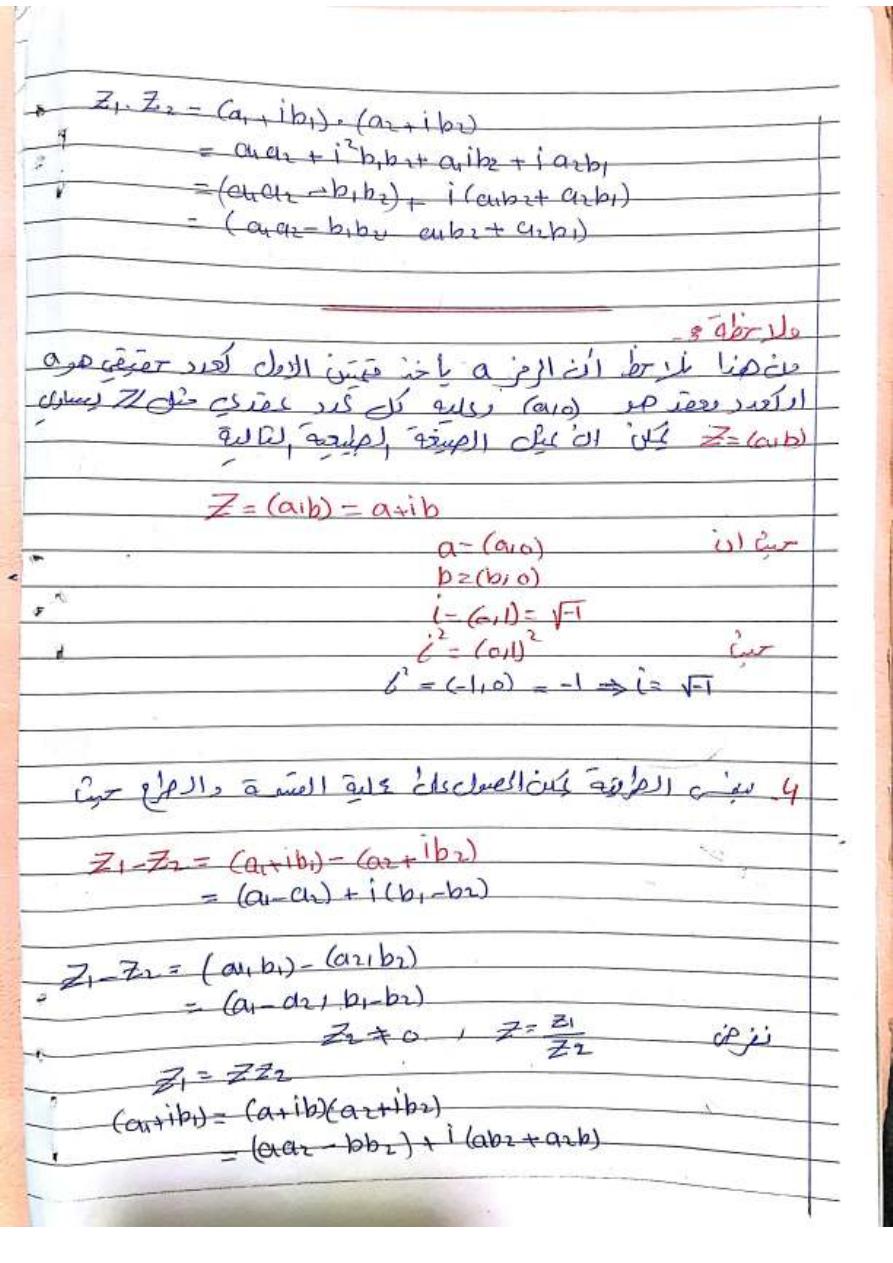 Z₁. Z₂ = (a₁+ib₁).(a₂+ib₂)
= a₁a₂ + i²b₁b₂ + a₁ib₂ + ia₂b₁
= (a₁a₂ - b₁b₂) + i(a₁b₂ + a₂b₁)
= (a₁a₂ - b₁b₂, a₁b₂ + a₂b₁)
ملاحظة :-
من هنا نلاحظ أن الرمز a يأخذ قيمتين الاول كعدد حقيقي هو a
او كعدد معقد هو (a,0) وعليه كل عدد عقدي مثل Z يساوي
Z=(a,b) يمكن ان يمثل الصيغة الطبيعية التالية
Z = (a,b) = a+ib
حيث ان a=(a,0)
b=(b,0)
i=(0,1)=√-1
حيث i²=(0,1)²
i² = (-1,0) = -1 ⇒ i = √-1
4. بنفس الطريقة يمكن الحصول على عملية القسمة والطرح حيث
Z₁-Z₂ = (a₁+ib₁)-(a₂+ib₂)
= (a₁-a₂) + i(b₁-b₂)
Z₁-Z₂ = (a₁,b₁)-(a₂,b₂)
= (a₁-a₂, b₁-b₂)
نفرض Z₂≠0 , Z=Z₁/Z₂
Z₁ = ZZ₂
(a₁+ib₁) = (a+ib)(a₂+ib₂)
= (aa₂ - bb₂) + i(ab₂+a₂b)